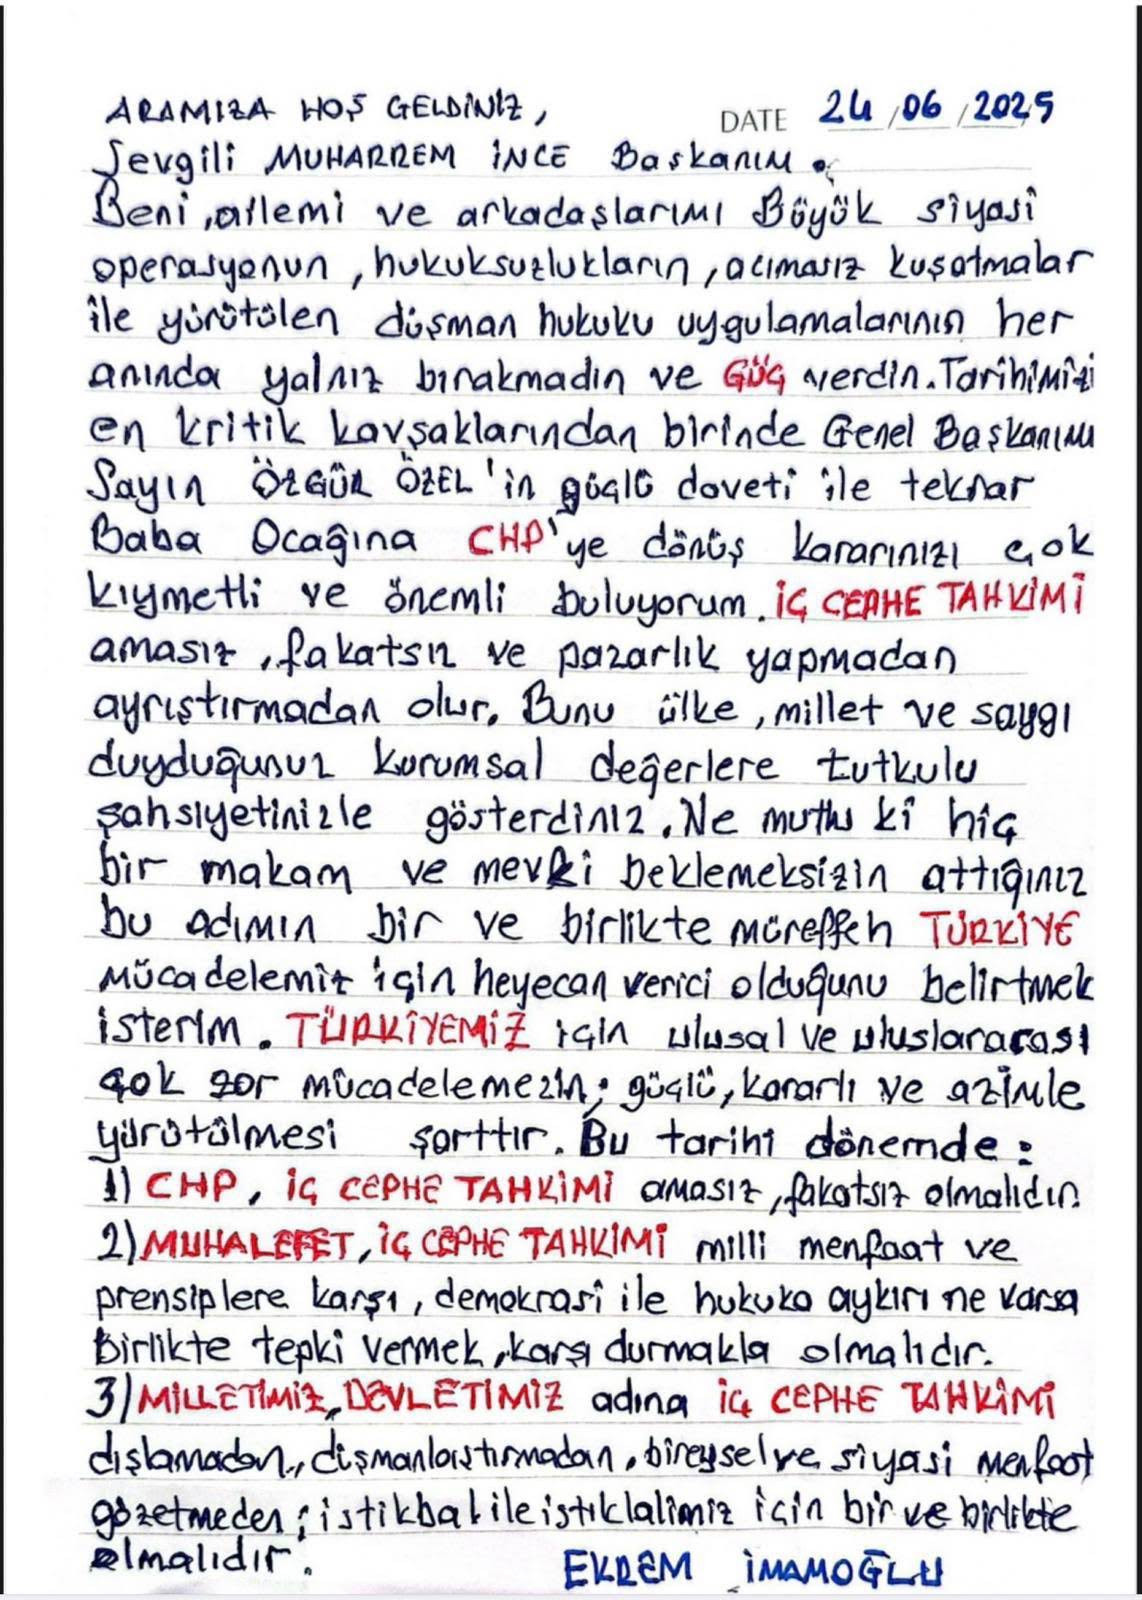 ARAMIZA HOŞ GELDİNİZ,
DATE 24/06/2025
Sevgili MUHARREM İNCE Başkanım.
Beni, ailemi ve arkadaşlarımı Büyük siyasi
operasyonun, hukuksuzlukların, acımasız kuşatmalar
ile yürütülen düşman hukuku uygulamalarının her
anında yalnız bırakmadın ve GÜÇ verdin. Tarihimizi
en kritik kavşaklarından birinde Genel Başkanımı
Sayın ÖZGÜR ÖZEL'in güçlü daveti ile tekrar
Baba Ocağına CHP'ye dönüş kararınızı çok
kıymetli ve önemli buluyorum. İÇ CEPHE TAHKİMİ
amasız, fakatsız ve pazarlık yapmadan
ayrıştırmadan olur. Bunu ülke, millet ve saygı
duyduğunuz kurumsal değerlere tutkulu
şahsiyetinizle gösterdiniz. Ne mutlu ki hiç
bir makam ve mevki beklemeksizin attığınız
bu adımın bir ve birlikte müreffeh TÜRKİYE
mücadelemiz için heyecan verici olduğunu belirtmek
isterim. TÜRKİYEMİZ için ulusal ve uluslararası
çok zor mücadelemezin; güçlü, kararlı ve azimle
yürütülmesi şarttır. Bu tarihi dönemde:
1) CHP, İÇ CEPHE TAHKİMİ amasız, fakatsız olmalıdır.
2) MUHALEFET, İÇ CEPHE TAHKİMİ milli menfaat ve
prensiplere karşı, demokrasi ile hukuka aykırı ne varsa
Birlikte tepki vermek, karşı durmakla olmalıdır.
3) MİLLETİMİZ, DEVLETİMİZ adına İÇ CEPHE TAHKİMİ
dışlamadan, düşmanlaştırmadan, bireysel ve siyasi menfaat
gözetmeden; istikbal ile istiklalimiz için bir ve birlikte
olmalıdır.
EKREM İMAMOĞLU